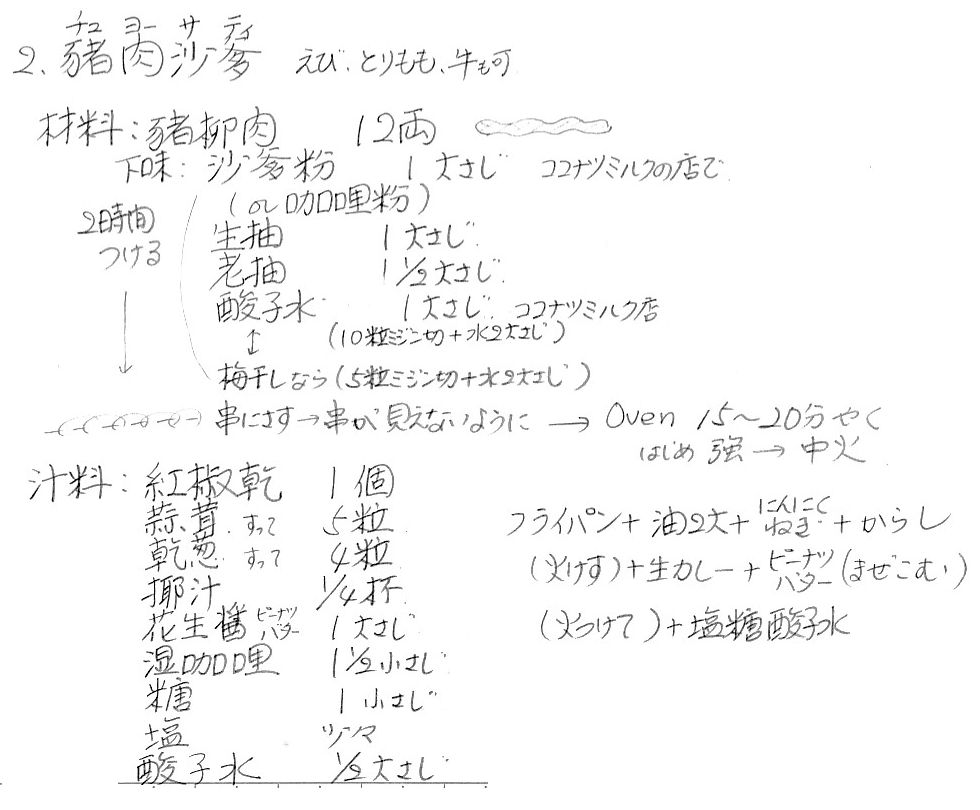 チュ ヨー サ ティ
2、豬肉沙爹 えび、とりもも、牛も可
材料：豬柳肉 12両
下味：沙爹粉 1大さじ ココナツミルクの店で
(or 咖喱粉)
2時間
つける
生抽 1大さじ
老抽 1 1/2大さじ
酸子水 1大さじ ココナツミルク店
(10粒ミジン切+水2大さじ)
↕
梅干しなら(5粒ミジン切+水2大さじ)
串にさす→串が見えないように → Oven 15〜20分やく
はじめ 強→中火
汁料：紅椒乾 1個
蒜茸 すって 5粒
乾葱 すって 4粒
椰汁 1/4杯
花生醤 ピーナツバター 1大さじ
湿咖喱 1 1/2小さじ
糖 1小さじ
塩
酸子水 1/2大さじ
フライパン+油2大+にんにくねぎ+からし
(火けす)+生カレー+ピーナツバター(まぜこむ)
(火つけて)+塩糖酸子水